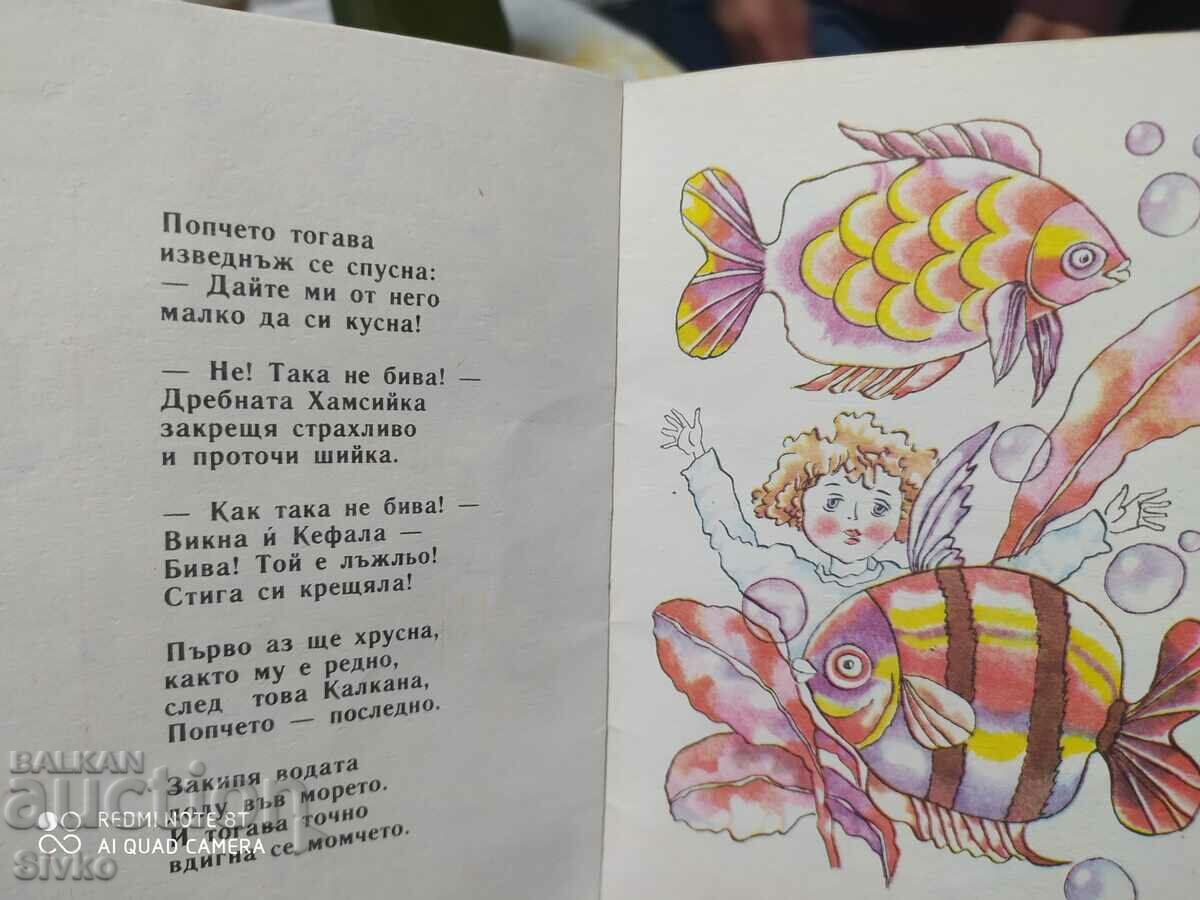 Попчето тогава
изведнъж се спусна:
— Дайте ми от него
малко да си кусна!
— Не! Така не бива! —
Дребната Хамсийка
закрещя страхливо
и проточи шийка.
— Как така не бива! —
Викна ѝ Кефала —
Бива! Той е лъжльо!
Стига си крещяла!
Първо аз ще хрусна,
както му е редно,
след това Калкана,
Попчето — последно.
Закипя водата
долу във морето.
И тогава точно
вдигна се момчето.
BALKAN
auction
REDMI NOTE 8T
AI QUAD CAMERA
Sivko